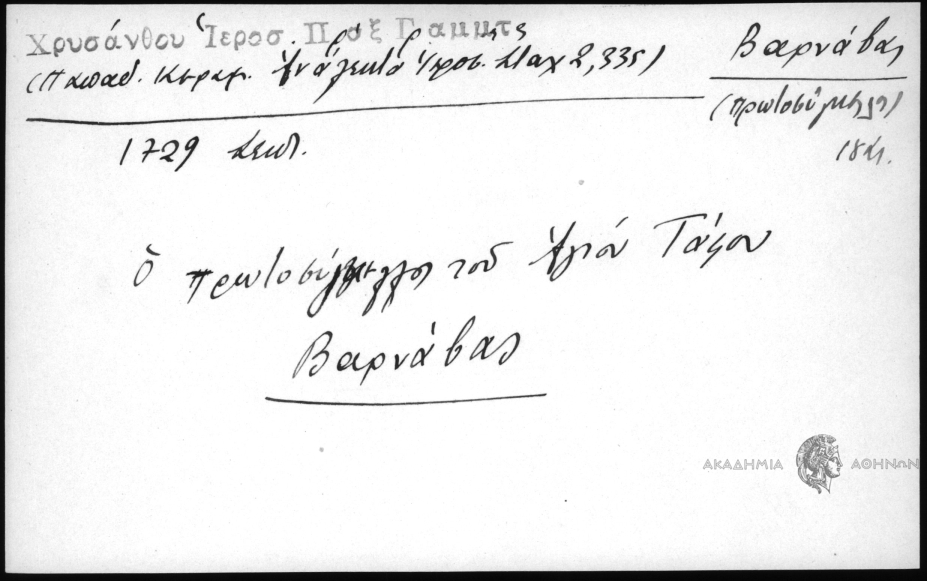 Χρυσάνθου Ἱεροσ. Πρᾶξ Γραμμτς
(Παπαδ. Κεραμ. Ἀνάλεκτα Ἱεροσ. Σταχ 2, 335)
Βαρνάβας
(πρωτοσύγκελλος)
18 αἰ.
1729 Σεπτ.
ὁ πρωτοσύγκελλος τοῦ Ἁγίου Τάφου
Βαρνάβας
ΑΚΑΔΗΜΙΑ ΑΘΗΝΩΝ